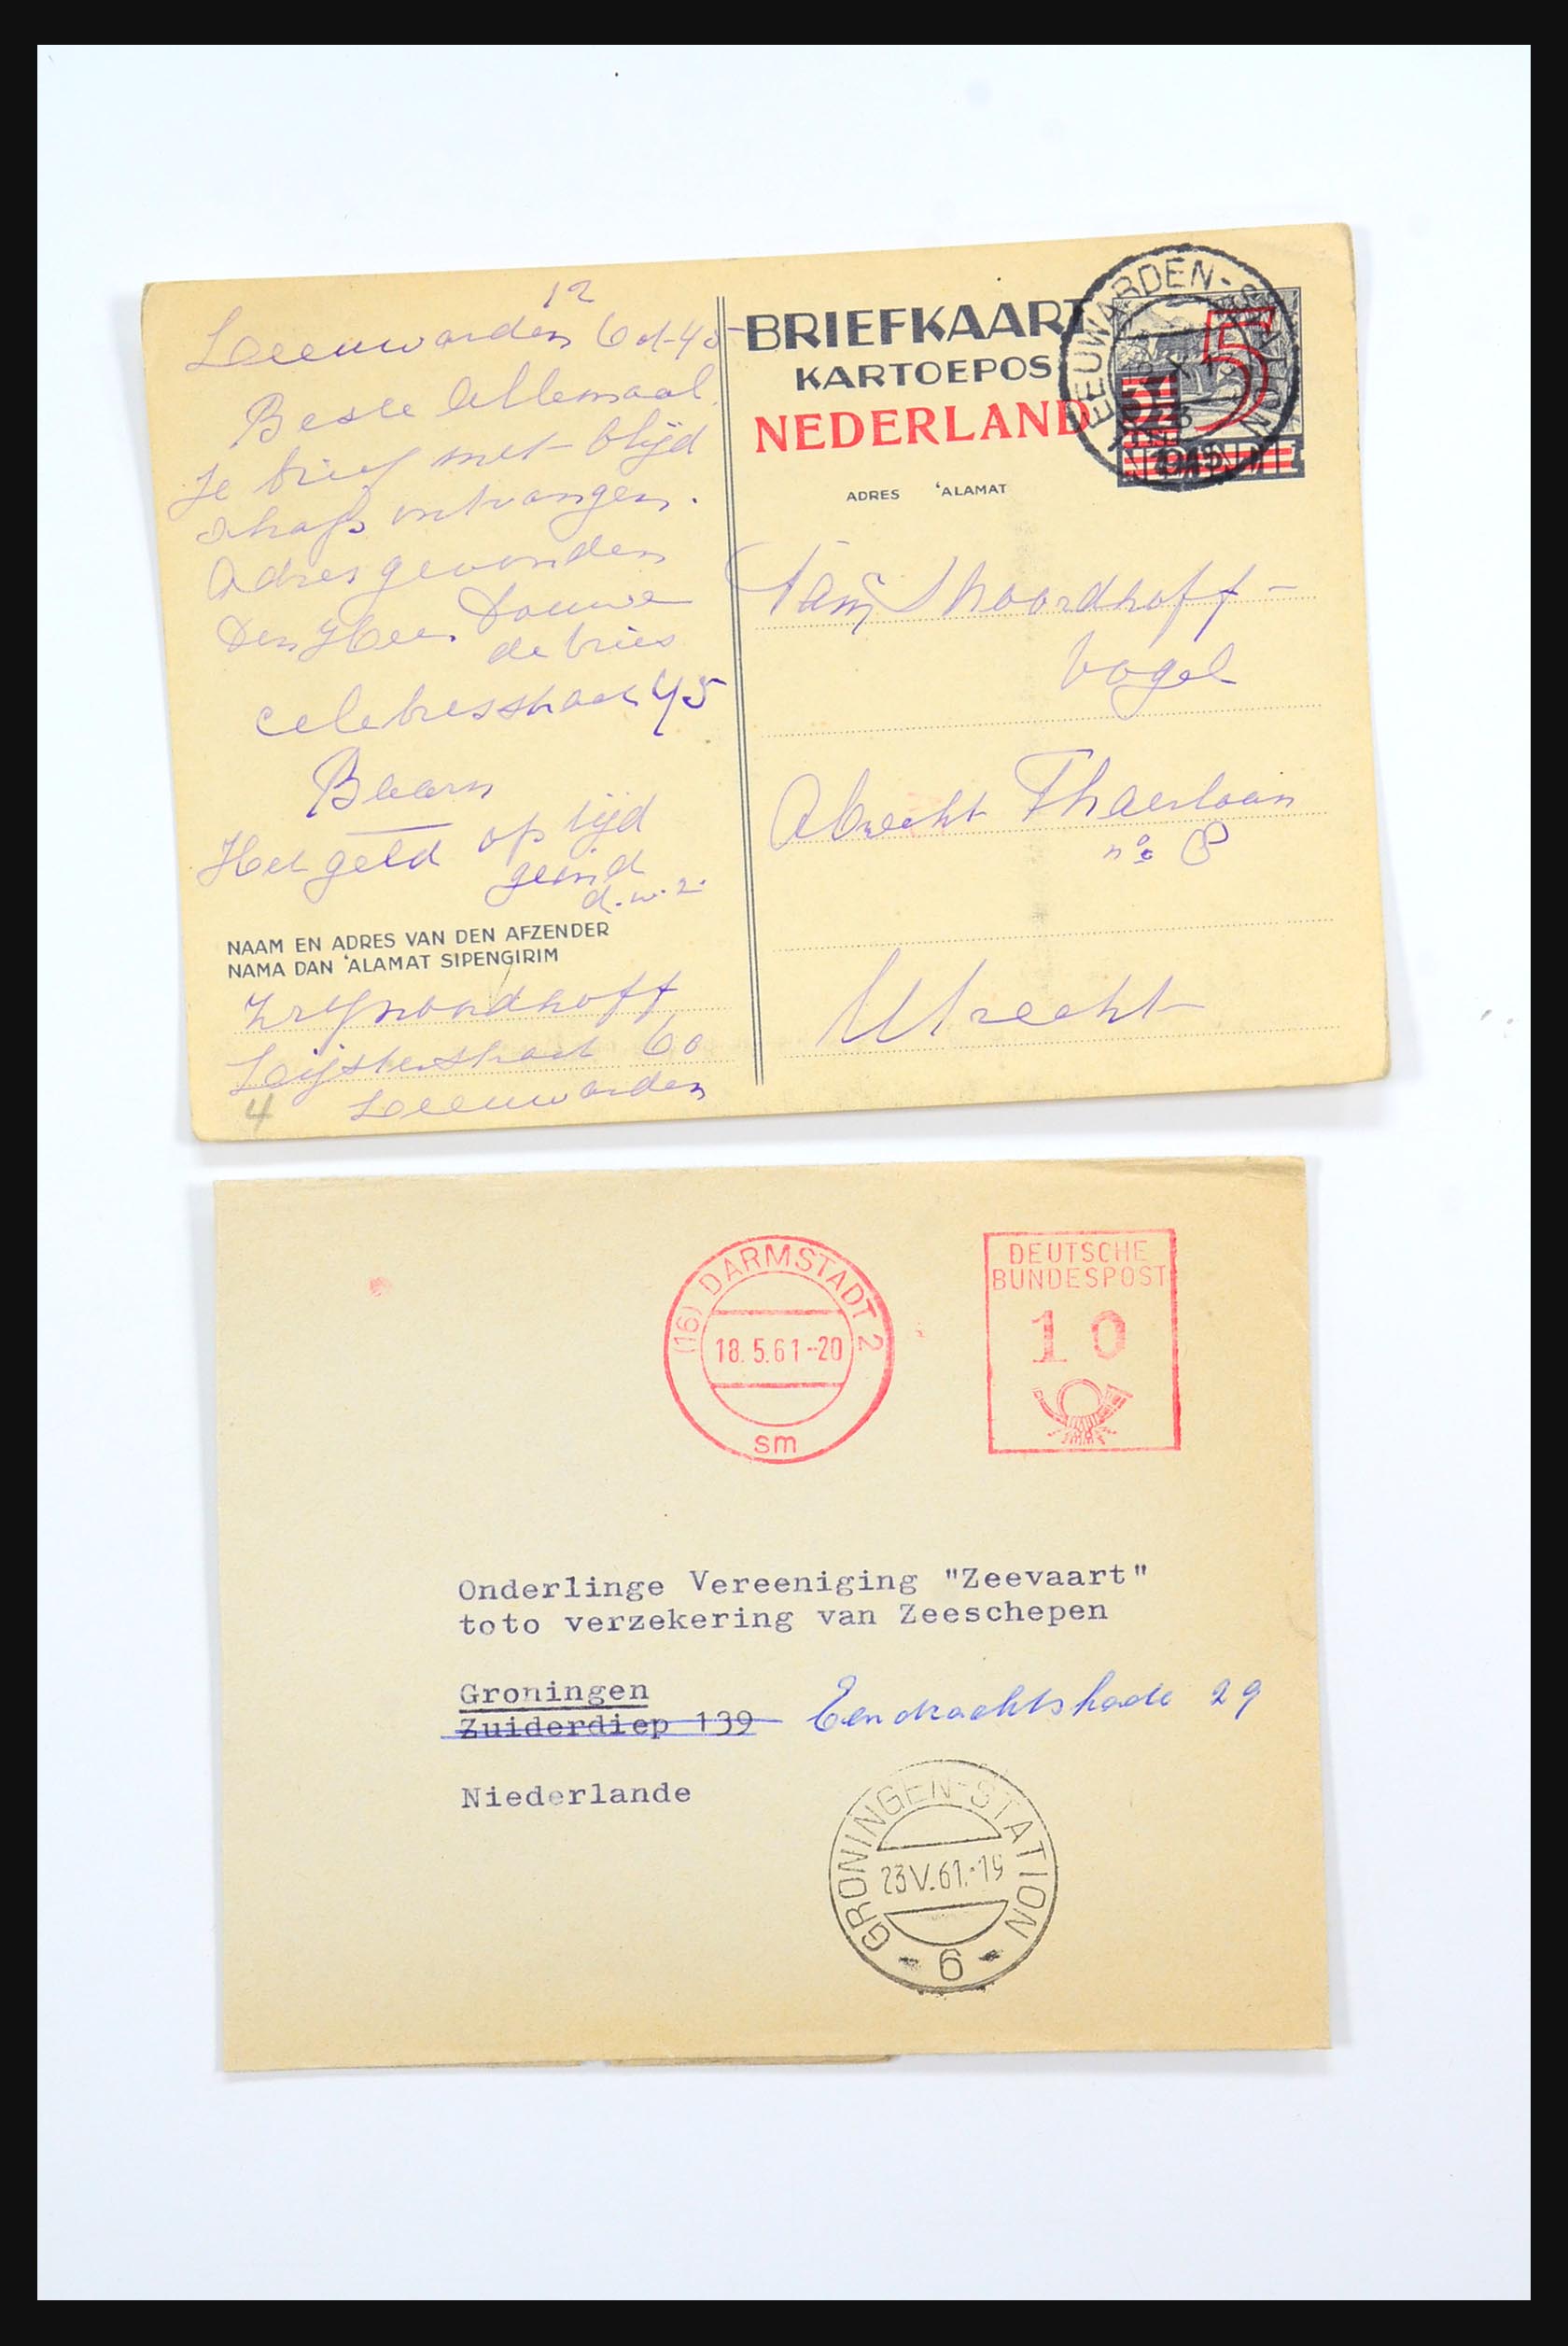 12
Leeuwarden 6 d-45
Beste Allemaal.
Je brief met blijd
schap ontvangen.
Adres gevonden
Den Heer Douwe
de Vries
Celebesstraat 45
Baarn
Het geld op tijd
geind
d.w.z.
NAAM EN ADRES VAN DEN AFZENDER
NAMA DAN 'ALAMAT SIPENGIRIM
Noordhoff
Leijsterstraat 60
Leeuwarden
4
BRIEFKAART
KARTOEPOS
NEDERLAND
ADRES 'ALAMAT
LEEUWARDEN-STATION
5
Fam Noordhoff-
Vogel
Abrecht Thaerlaan
no 8
Utrecht
(16) DARMSTADT 2
18.5.61-20
sm
DEUTSCHE
BUNDESPOST
10
Onderlinge Vereeniging "Zeevaart"
toto verzekering van Zeeschepen
Groningen
Zuiderdiep 139 Eendrachtskade 29
Niederlande
GRONINGEN-STATION
23.V.61.-19
6